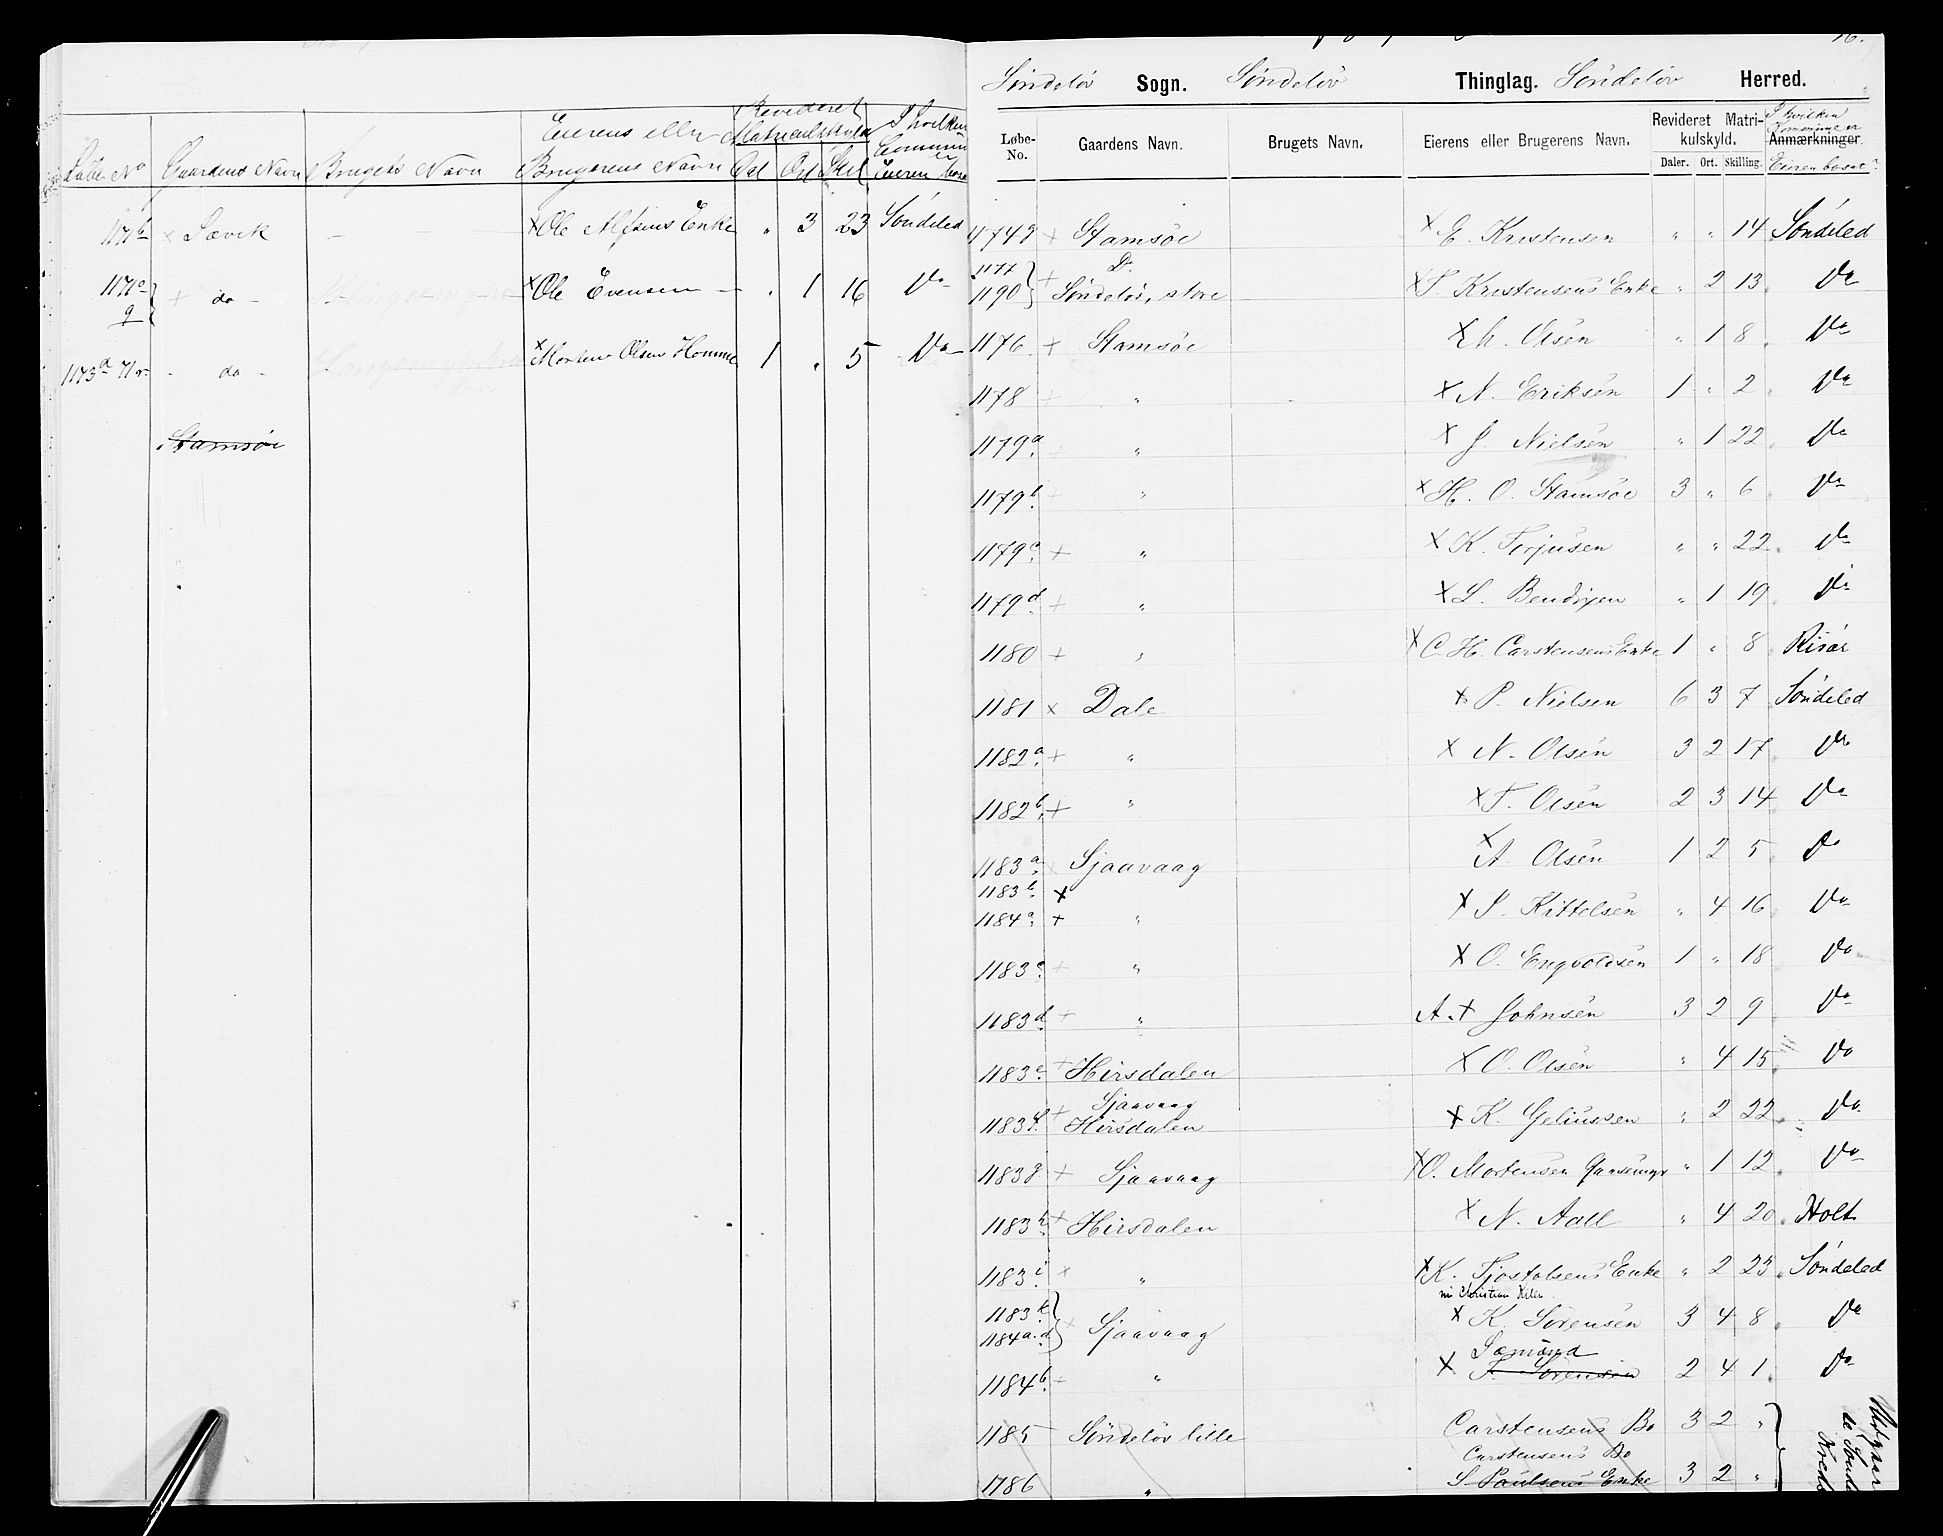 Løbe No Gaardens Navn Brugets Navn Eierens eller Brugerens Navn Revideret Matriculskyld Dal Ort Skil I hvilken Commune er Eieren bosat
1171b × Sævik — — × Ole Alfsens Enke " 3 23 Söndeled
1171o q } + do - × Ole Evensen — " 1 16 Do
1173d - do - × Morten Olsen Homme 1 " 5 Do
Stamsöe
16.
Söndelöv Sogn. Söndelöv Thinglag. Söndelöv Herred.
Løbe-No. Gaardens Navn. Brugets Navn. Eierens eller Brugerens Navn. Revideret Matrikulskyld. Daler. Ort. Skilling. Anmærkninger. I hvilken Kommune er Eieren bosat?
1174g + Stamsöe × E. Kristensen " " 14 Söndeled
1177 1190 } + Do Söndelöv, store × T. Kristensens Enke " 2 13 Do
1176 + Stamsöe × Ch. Olsen " 1 8 Do
1178 + " × N. Eriksen 1 " 2 Do
1179a " × J. Nielsen " 1 22 Do
1179b + " × H. O. Stamsöe 3 " 6 Do
1179c + " × K. Terjusen " " 22 Do
1179d + " × L. Bendixen " 1 19 Do
1180 + " × C. H. Carstensens Enke 1 " 8 Risör
1181 × Dale × P. Nielsen 6 3 7 Söndeled
1182a + " × N. Olsen 3 2 17 Do
1182b + " × T. Olsen 2 3 14 Do
1183a × Sjaavaag × A. Olsen 1 2 5 Do
1183b ×
1184a + " × S. Kittelsen " 4 16 Do
1183c + " × O. Engvoldsen 1 " 18 Do
1183d + " A. + Johnsen 3 2 9 Do
1183e + Hirsdalen × O. Olsen " 4 15 Do
1183f + Sjaavaag Hirsdalen × K. Geliussen " 2 22 Do
1183g + Sjaavaag × O. Mortensen " 1 12 Do
1183h + Hirsdalen × N. Aall " 4 20 Holt
1183i × " × K. Tjostolsens Enke " 2 23 Söndeled
nu Christian
1183k 1184a.d } × Sjaavaag × K. Sörensen 3 4 8 Do
Sæmund
1184b - " × T. Sörensen 2 4 1 Do
1185 Söndelöv lille Carstensens Bo 3 2 "
Carstensens Bo
1186 " S. Paulsens Enke 3 2 "